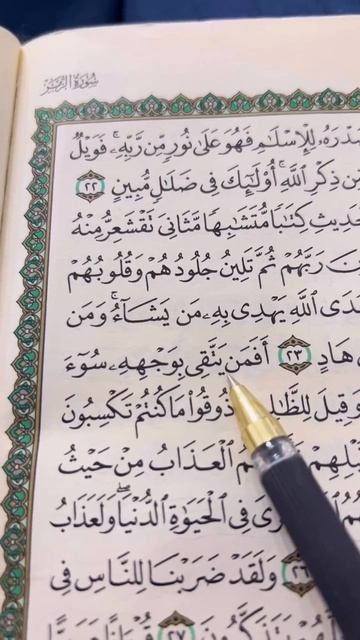 سُورَةُ الزُّمَرِ
صَدْرَهُۥ لِلْإِسْلَٰمِ فَهُوَ عَلَىٰ نُورٍ مِّن رَّبِّهِۦ ۚ فَوَيْلٌ
مِّن ذِكْرِ ٱللَّهِ ۚ أُو۟لَٰٓئِكَ فِى ضَلَٰلٍ مُّبِينٍ ٢٢
كِتَٰبًا مُّتَشَٰبِهًا مَّثَانِىَ تَقْشَعِرُّ مِنْهُ
رَبَّهُمْ ثُمَّ تَلِينُ جُلُودُهُمْ وَقُلُوبُهُمْ
ٱللَّهِ يَهْدِى بِهِۦ مَن يَشَآءُ ۚ وَمَن
هَادٍ ٢٣ أَفَمَن يَتَّقِى بِوَجْهِهِۦ سُوٓءَ
وَقِيلَ ذُوقُوا۟ مَا كُنتُمْ تَكْسِبُونَ
ٱلْعَذَابُ مِنْ حَيْثُ
فِى ٱلْحَيَوٰةِ ٱلدُّنْيَا ۖ وَلَعَذَابُ
وَلَقَدْ ضَرَبْنَا لِلنَّاسِ فِى
٢٧